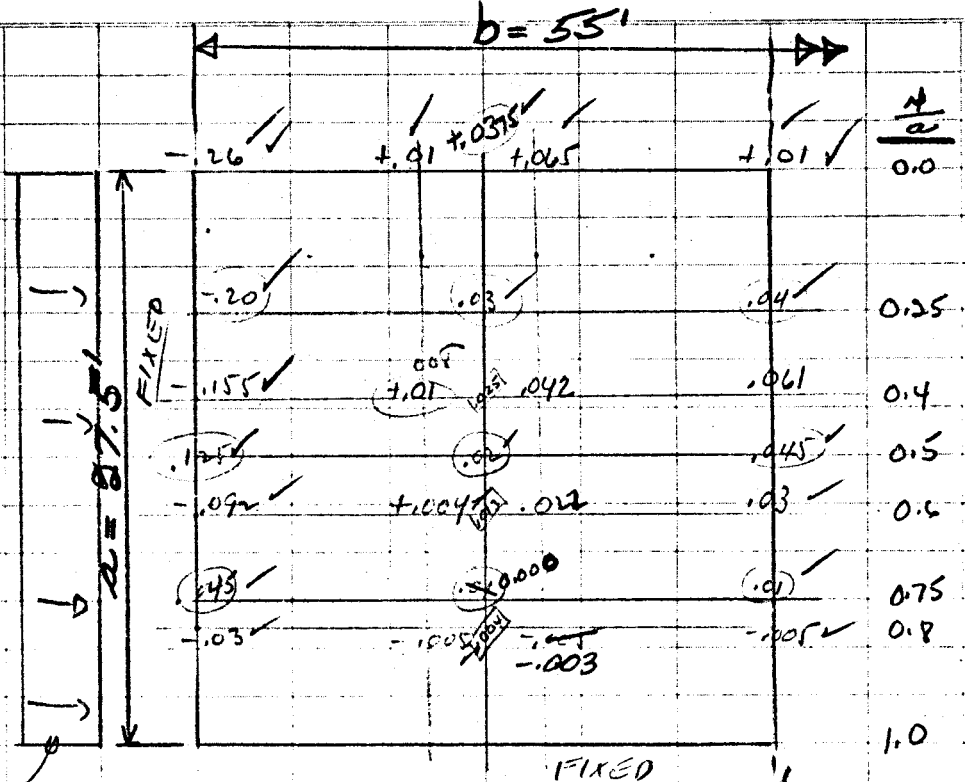 b = 55'
-.26 +.01 +.0375 +.065 +.01
0.0
-.20 .03 .04 0.25
FIXED
.008
-.155 +.01 .025 .042 .061 0.4
.125 .02 .045 0.5
a = 27.5'
-.092 +.004 .022 .03 0.6
.045 0.000 .01 0.75
-.03 -.005 -.004 -.005 0.8
-.003
1.0
FIXED